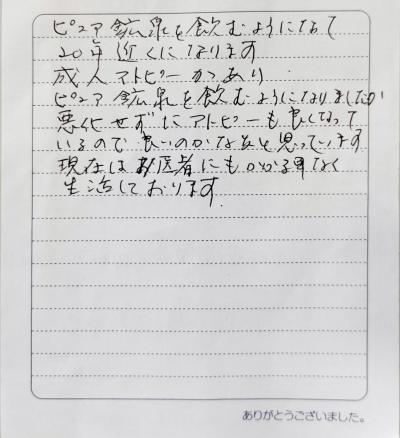 ピュア鉱泉を飲むようになって
20年近くになります
成人アトピーがあり
ピュア鉱泉を飲むようになりましたが
悪化せずにアトピーも良くなって
いるので良いのかなあと思っています
現在はお医者にもかかる事なく
生活しております。
ありがとうございました。